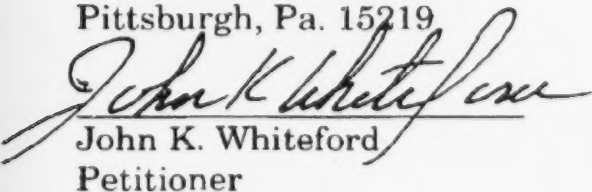 Pittsburgh, Pa. 15219
John K Whiteford
John K. Whiteford
Petitioner